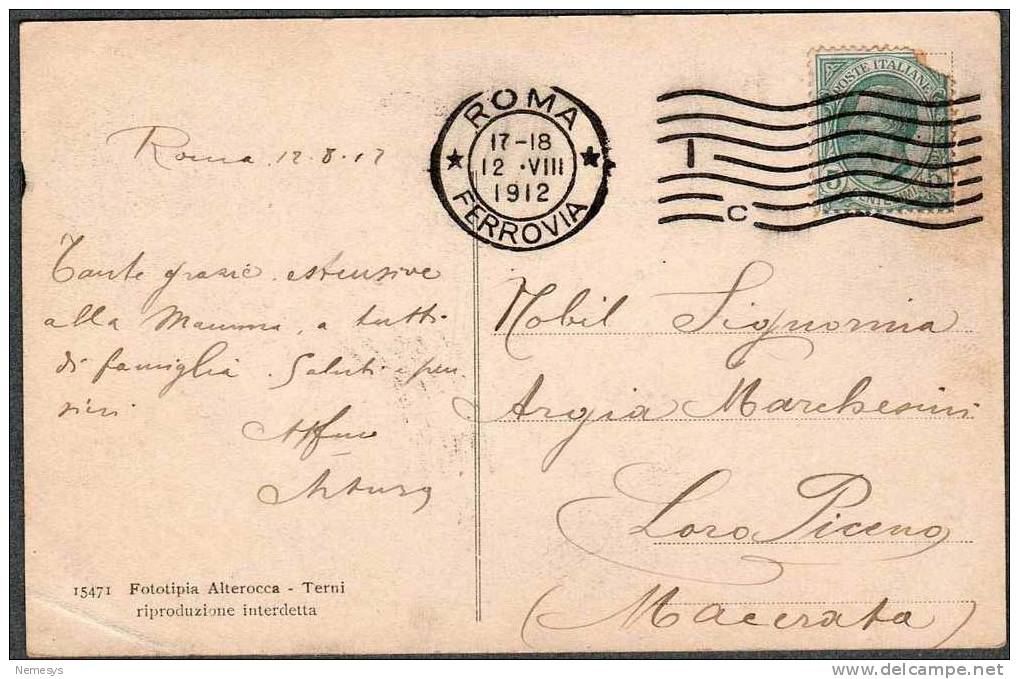 ROMA
17-18
12 · VIII
1912
FERROVIA
I
C
POSTE ITALIANE
5
Roma 12.8.12
Tante grazie estensive
alla Mamma, a tutti
di famiglia. Saluti e pen
sieri
Affmo
Arturo
15471 Fototipia Alterocca - Terni
riproduzione interdetta
Nobil Signorina
Argia Marchesini
Loro Piceno
(Macerata)
Nemesys
delcampe.net